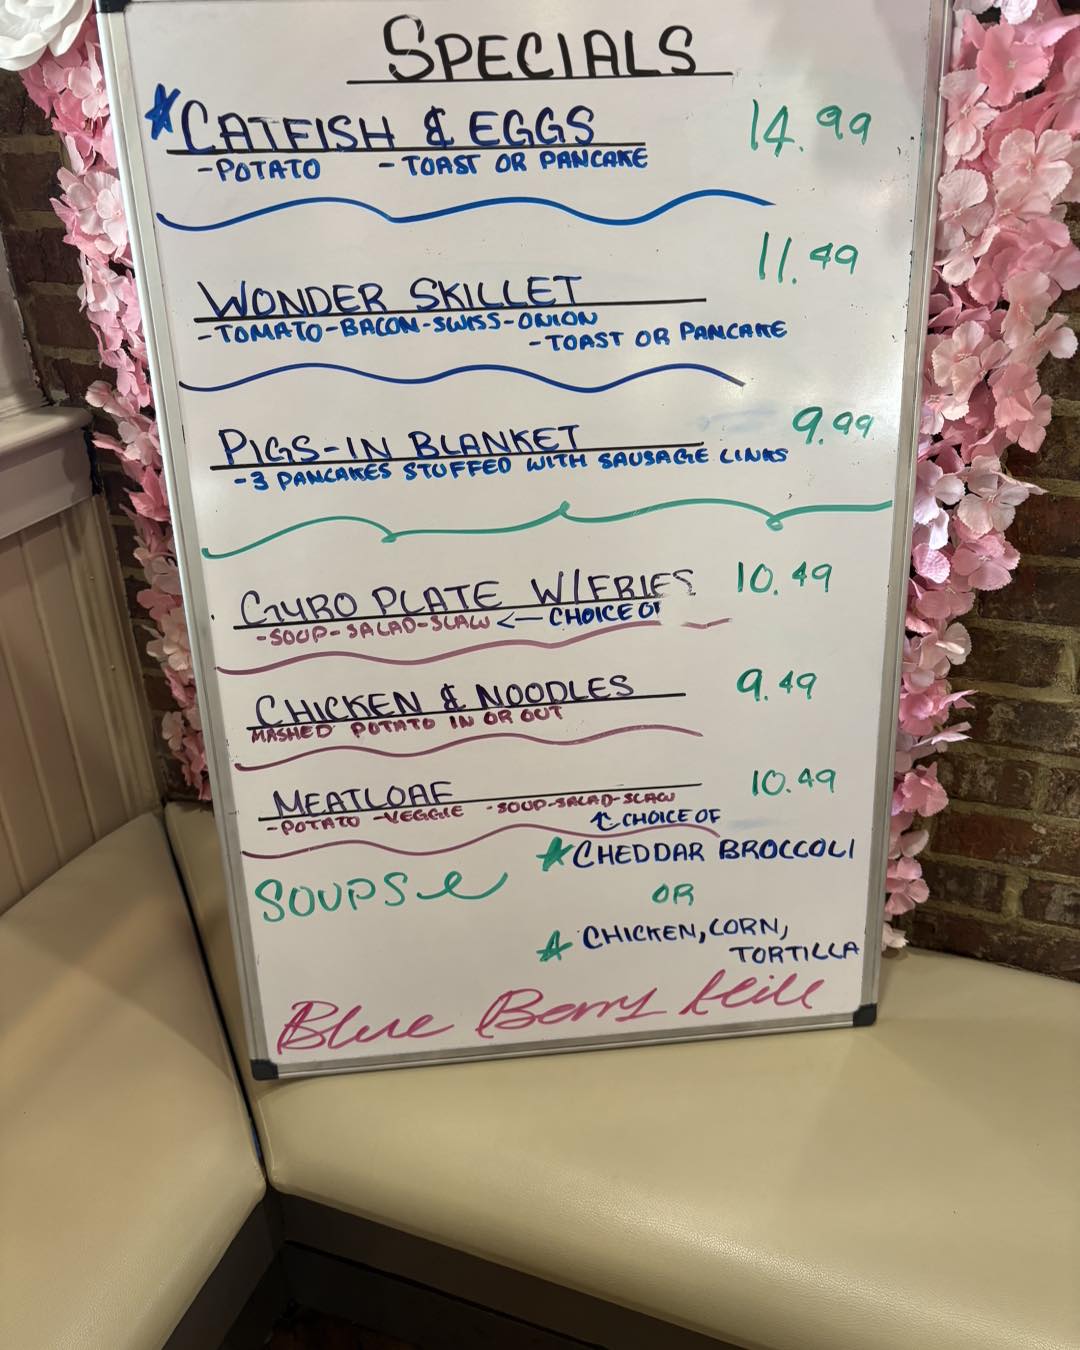 SPECIALS
CATFISH & EGGS 14.99
-POTATO - TOAST OR PANCAKE
WONDER SKILLET 11.49
-TOMATO-BACON-SWISS-ONION
-TOAST OR PANCAKE
PIGS-IN BLANKET 9.99
-3 PANCAKES STUFFED WITH SAUSAGE LINKS
GYRO PLATE W/FRIES 10.49
-SOUP-SALAD-SLAW <— CHOICE OF
CHICKEN & NOODLES 9.49
MASHED POTATO IN OR OUT
MEATLOAF 10.49
-POTATO -VEGGIE -SOUP-SALAD-SLAW
CHOICE OF
SOUPS CHEDDAR BROCCOLI
OR
CHICKEN, CORN,
TORTILLA
Blue Berry Hill